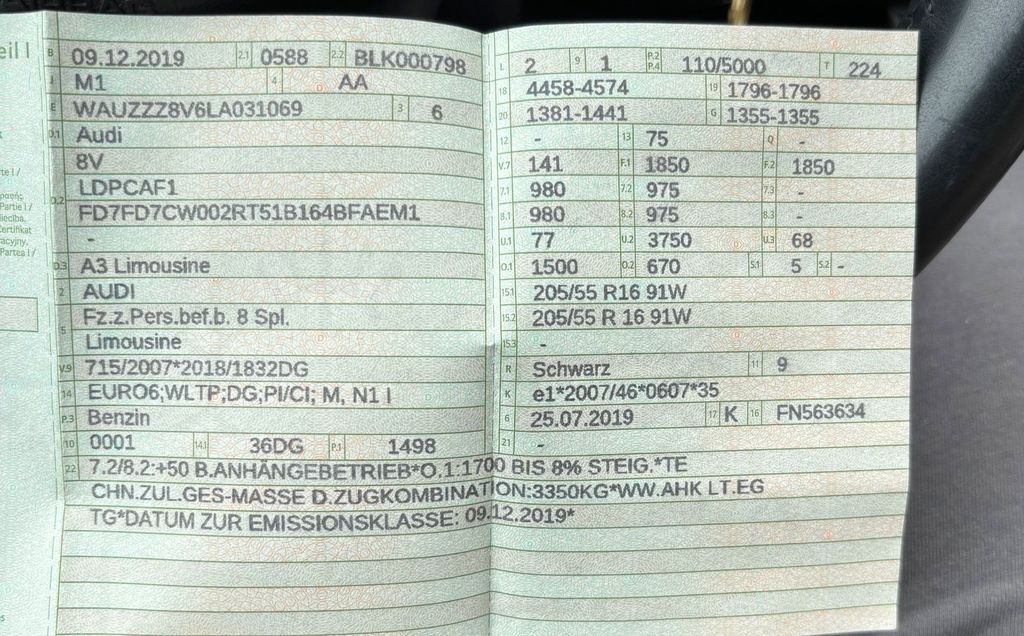 eil I
B 09.12.2019 2.1 0588 2.2 BLK000798
J M1 4 AA
E WAUZZZ8V6LA031069 3 6
D.1 Audi
8V
LDPCAF1
D.2 FD7FD7CW002RT51B164BFAEM1
-
D.3 A3 Limousine
2 AUDI
5 Fz.z.Pers.bef.b. 8 Spl.
Limousine
V.9 715/2007*2018/1832DG
14 EURO6;WLTP;DG;PI/CI; M, N1 I
P.3 Benzin
10 0001 14.1 36DG P.1 1498
L 2 9 1 P.2 P.4 110/5000 T 224
18 4458-4574 19 1796-1796
20 1381-1441 G 1355-1355
12 - 13 75 Q -
V.7 141 F.1 1850 F.2 1850
7.1 980 7.2 975 7.3 -
8.1 980 8.2 975 8.3 -
U.1 77 U.2 3750 U.3 68
O.1 1500 O.2 670 S.1 5 S.2 -
15.1 205/55 R16 91W
15.2 205/55 R 16 91W
15.3 -
R Schwarz 11 9
K e1*2007/46*0607*35
6 25.07.2019 17 K 16 FN563634
21 -
22 7.2/8.2:+50 B.ANHÄNGEBETRIEB*O.1:1700 BIS 8% STEIG.*TE
CHN.ZUL.GES-MASSE D.ZUGKOMBINATION:3350KG*WW.AHK LT.EG
TG*DATUM ZUR EMISSIONSKLASSE: 09.12.2019*